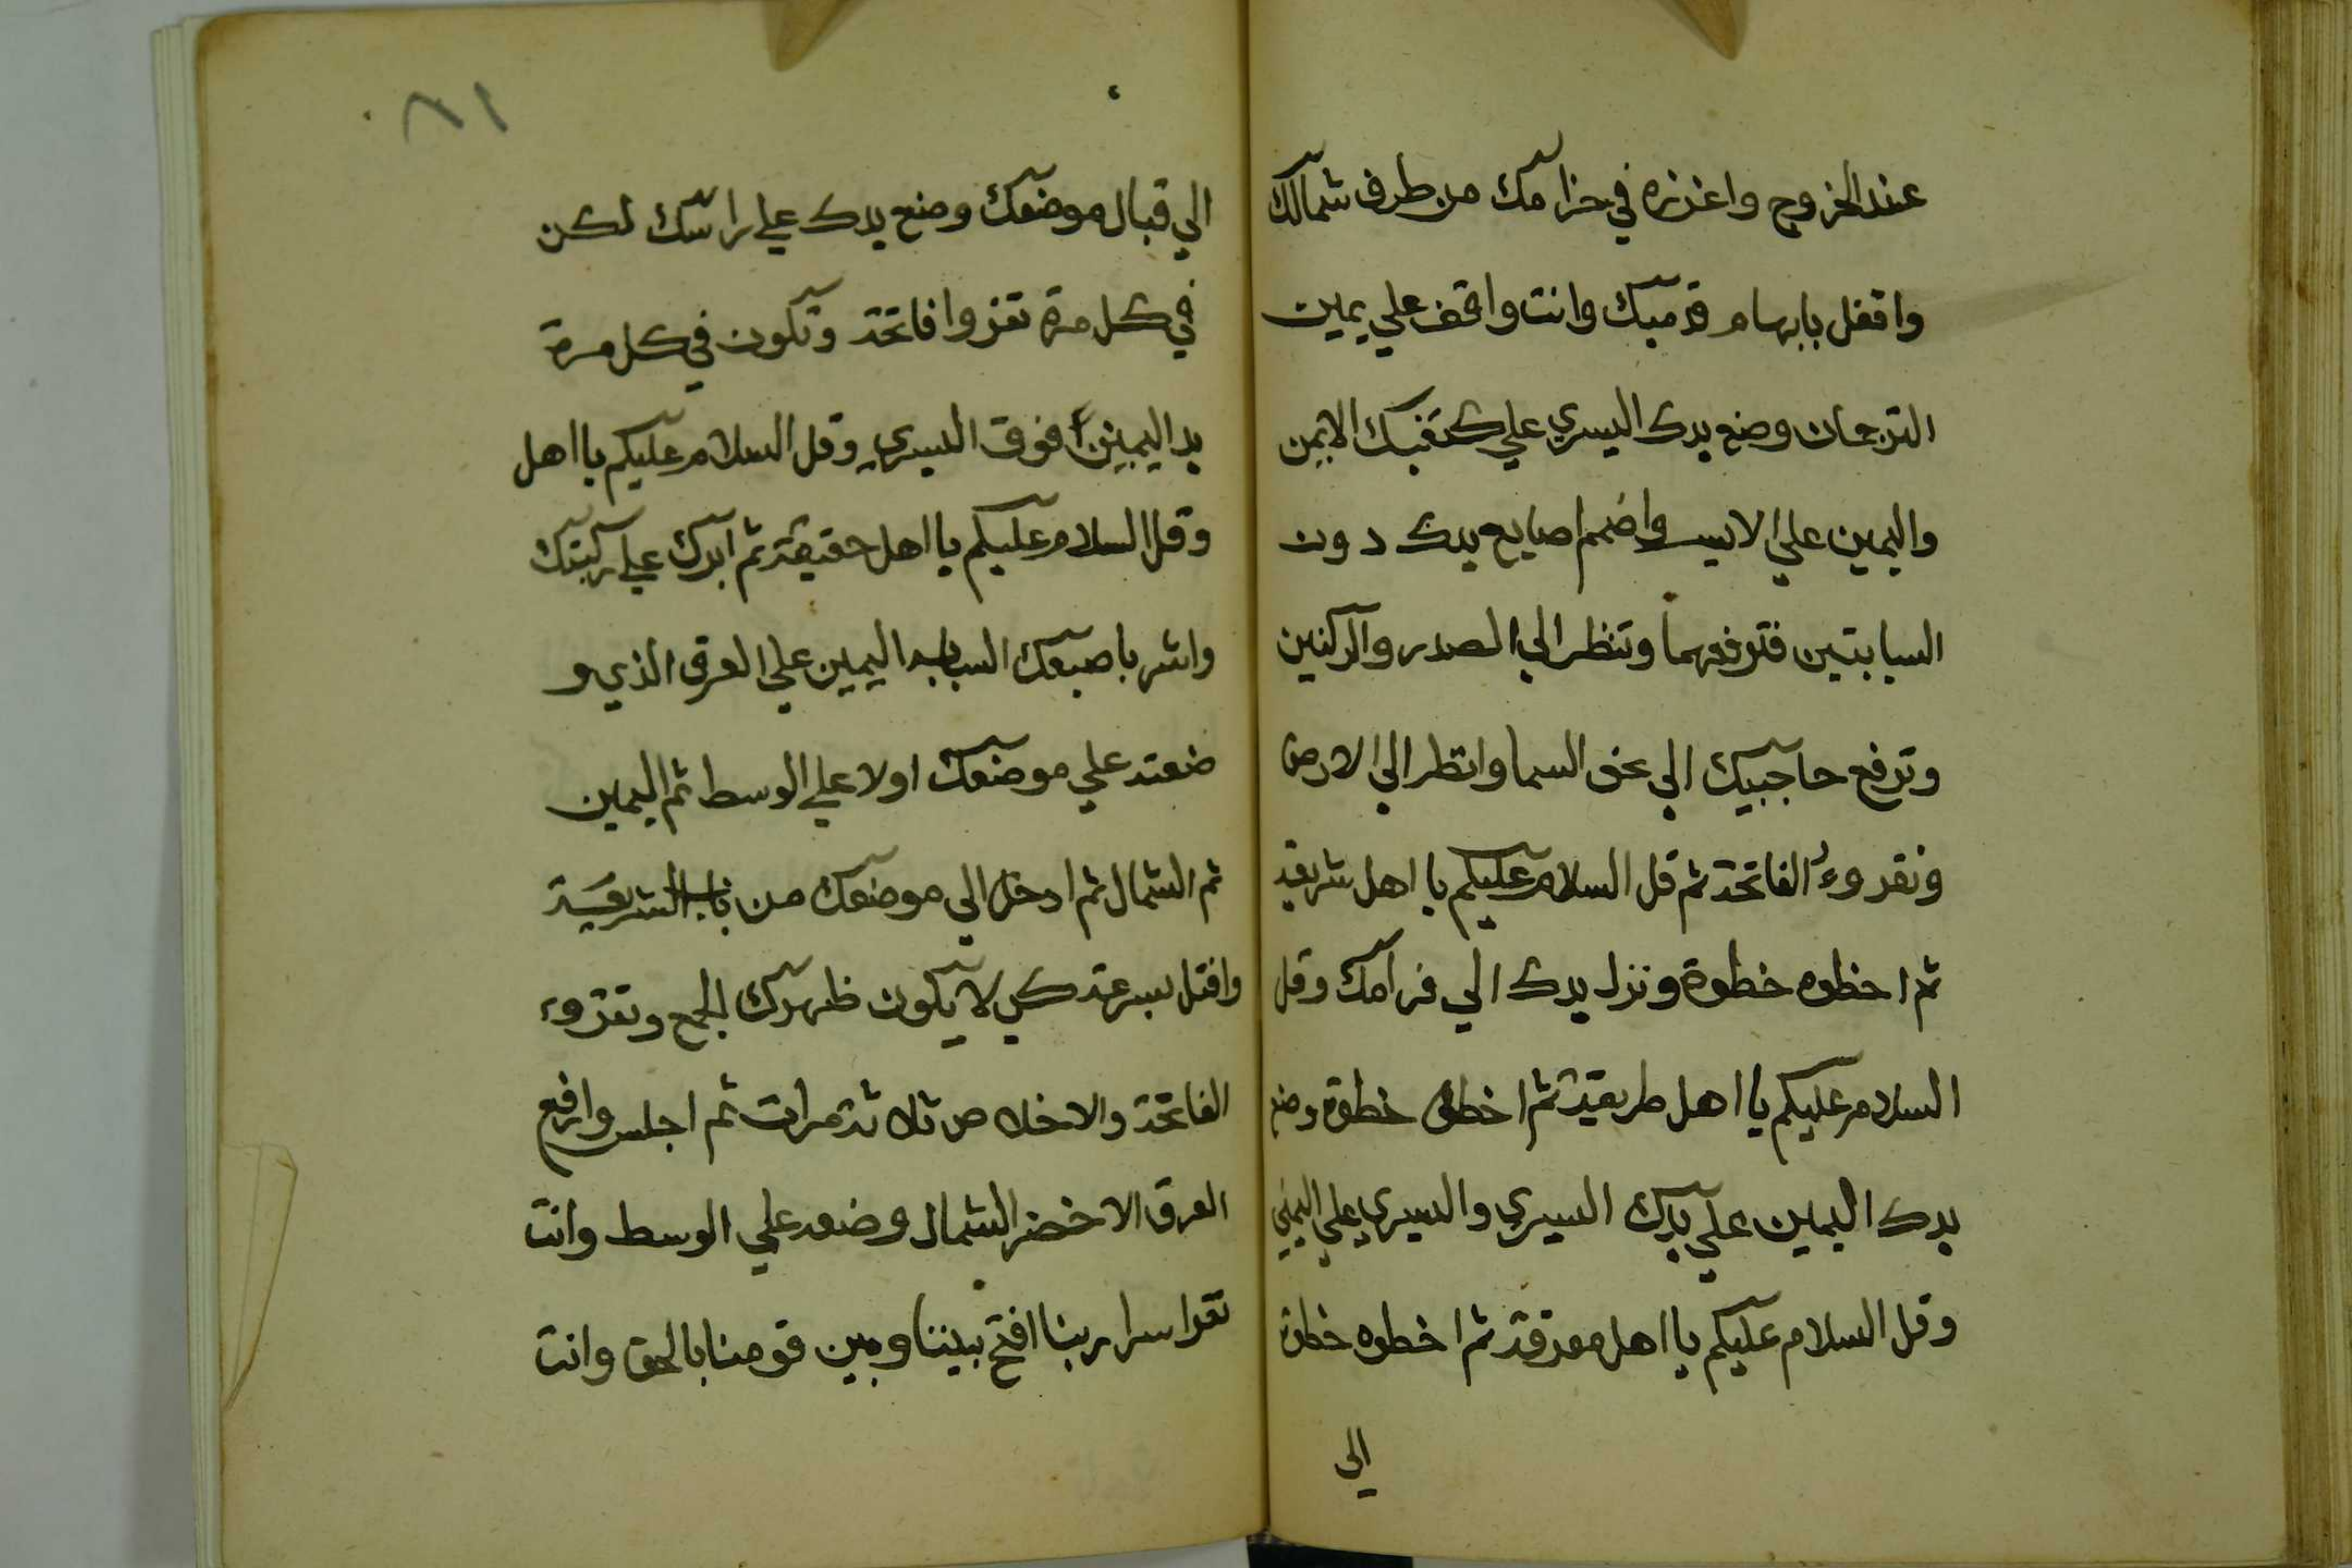 عند الخروج واغرزه في حزامك من طرف شمالك
واقفل بابهام قدميك وانت واقف علي يمين
الترجمان وضع يدك اليسري علي كتفيك الايمن
واليمين علي الايسر واضمم اصابع يدك دون
السبابتين فترفعهما وتنظر الي الصدر والركنين
وترفع حاجبيك الي نحو السما وانظر الي الارض
وتقروء الفاتحة ثم قل السلام عليكم يا اهل شريعة
ثم اخطوه خطوة ونزل يدك الي فرامك وقل
السلام عليكم يا اهل طريقة ثم اخطو خطوة وضع
يدك اليمين علي يدك اليسري واليسري علي اليمني
وقل السلام عليكم يا اهل معرفة ثم اخطوه خطوة
الي
٨١
الي قبال موضعك وضع يدك علي راسك لكن
في كل مرة تقروا فاتحة وتكون في كل مرة
يد اليمين فوق اليسري وقل السلام عليكم يا اهل
وقل السلام عليكم يا اهل حقيقة ثم ابرك علي ركبتك
واشر باصبعك السبابه اليمين علي العرق الذي و
ضعته علي موضعك اولا علي الوسط ثم اليمين
ثم الشمال ثم ادخل الي موضعك من باب الشريعة
وافتل بسرعة كي لا يكون ظهرك للجمع وتقروء
الفاتحة والاخلاص ثلاثة مرات ثم اجلس وارفع
العرق الاخضر الشمال وضعه علي الوسط وانت
تقرا سرا ربنا افتح بيننا وبين قومنا بالحق وانت